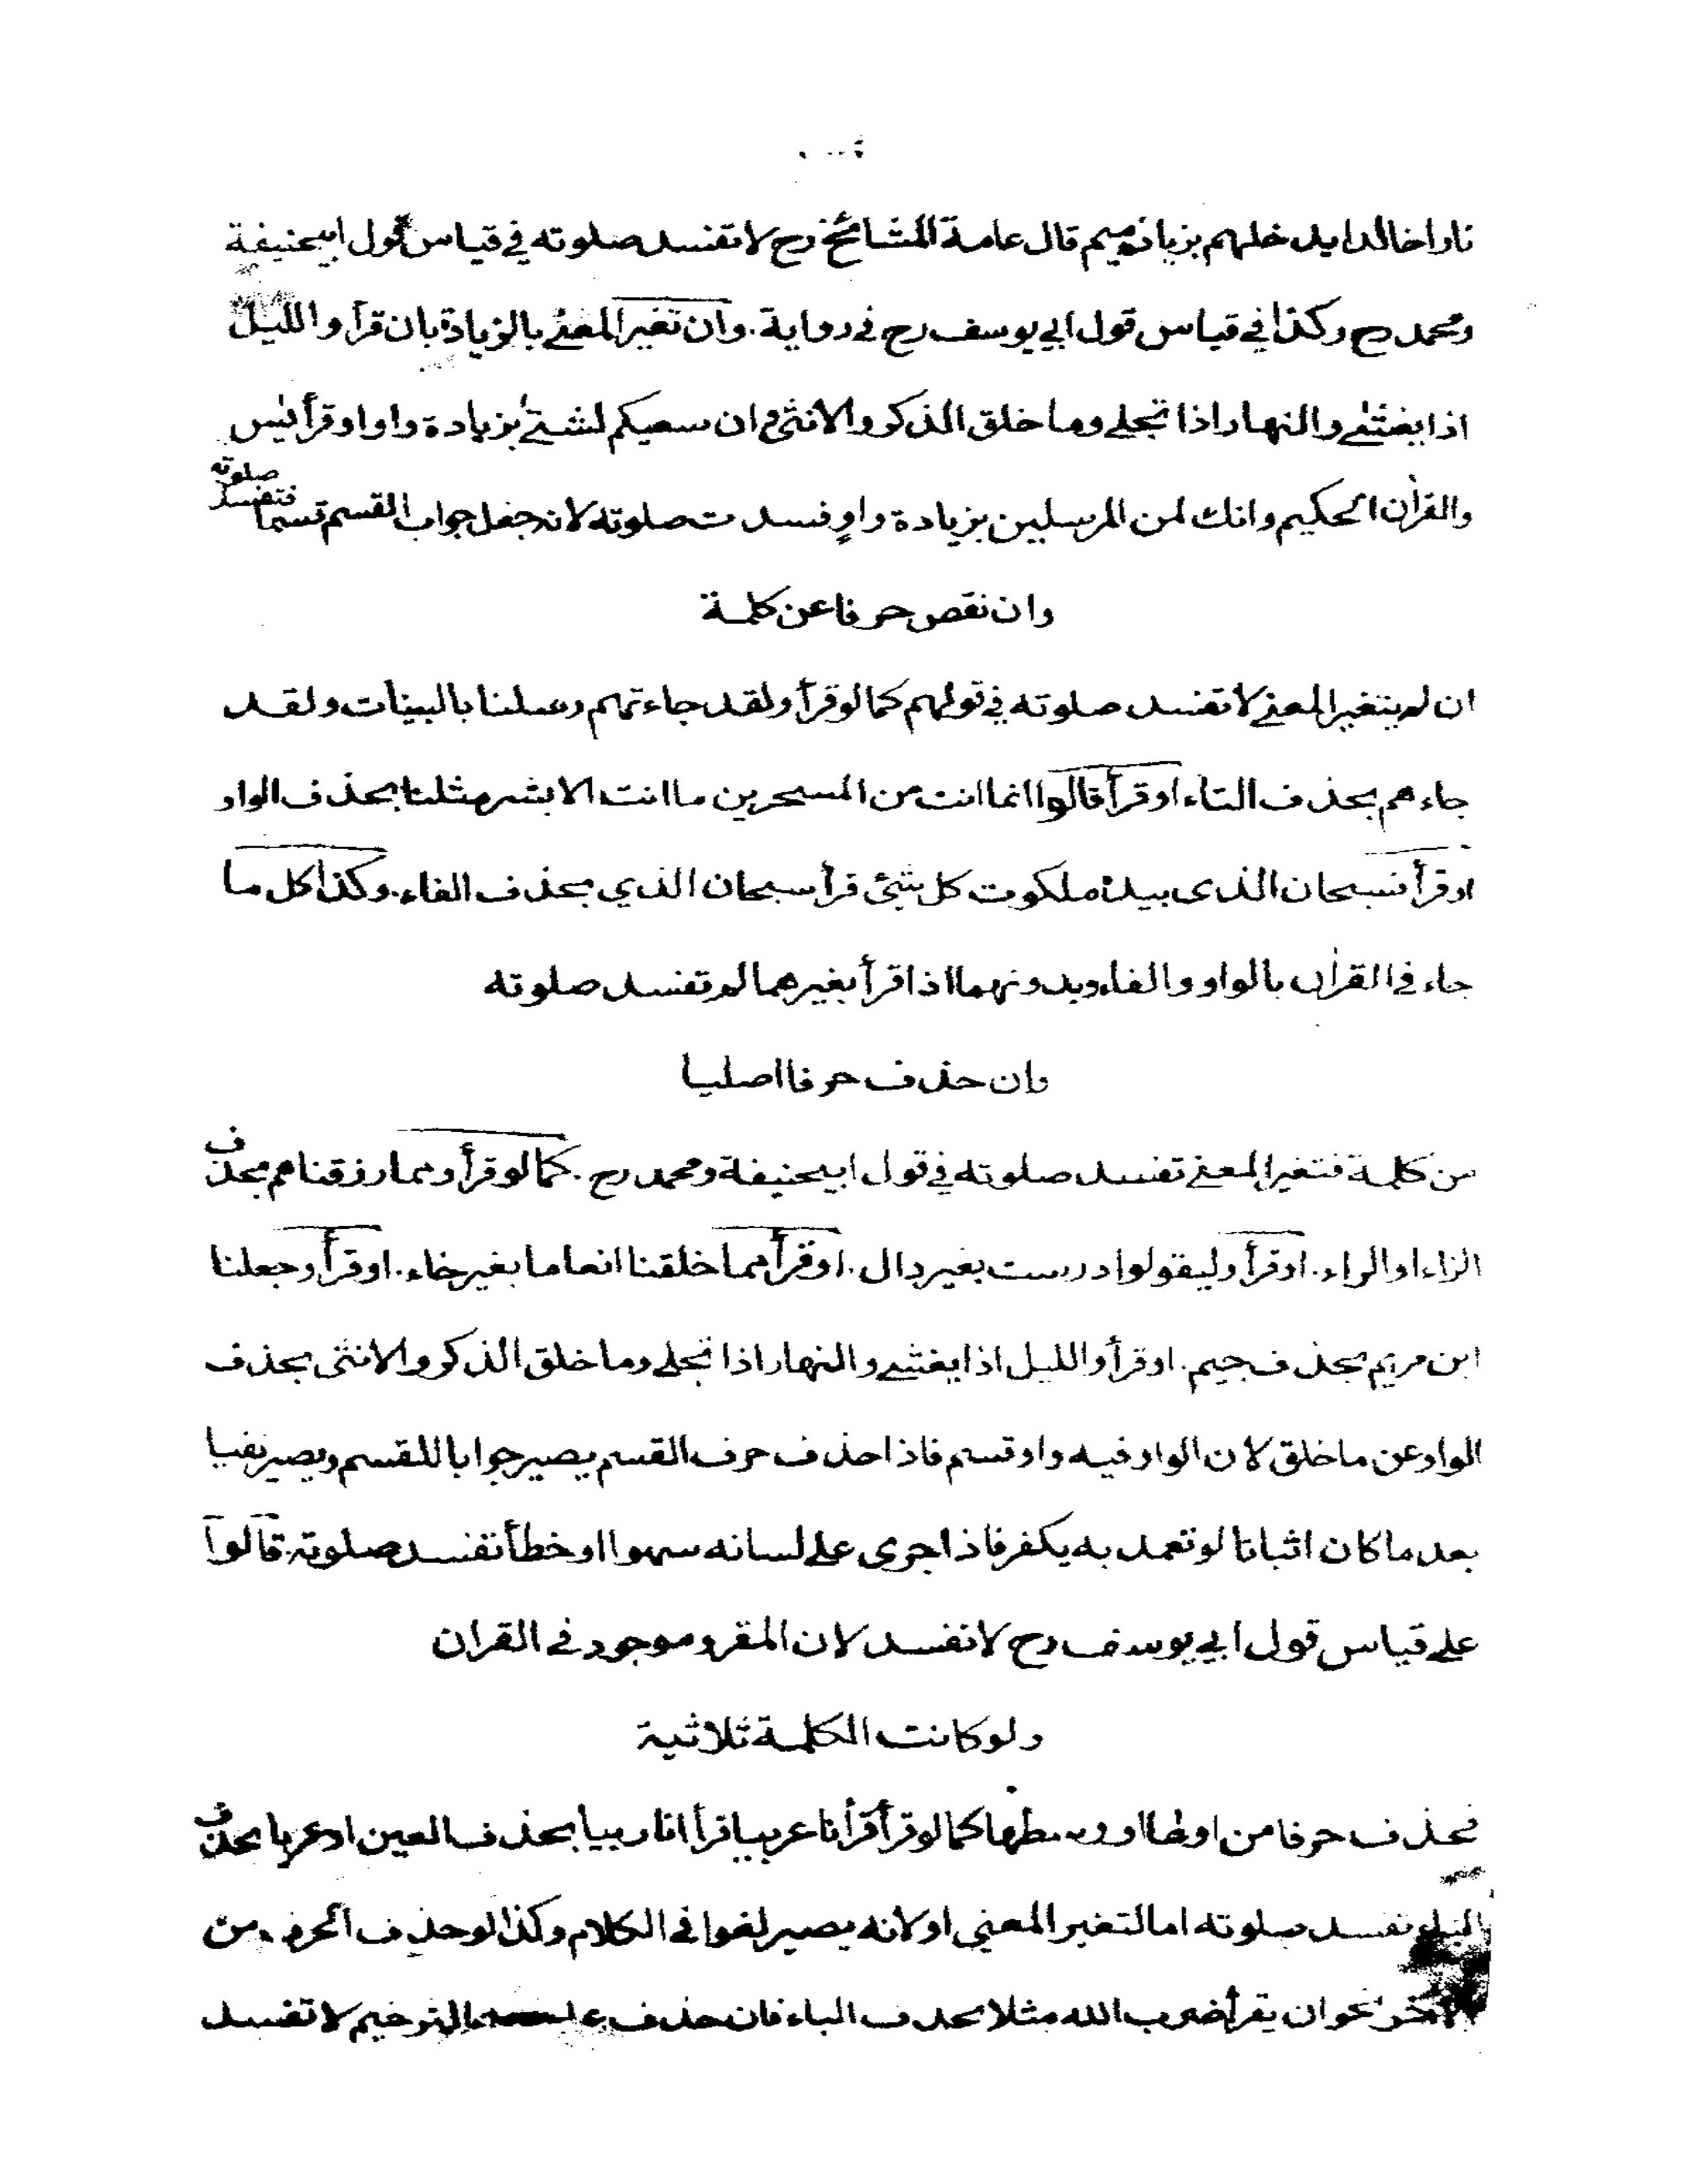 نارا خالدا يدخلهم بزيادة ميم قال عامة المشائخ رح لا تفسد صلوته في قياس قول ابيحنيفة
ومحمد رح وكذا في قياس قول ابي يوسف رح في رواية . وان تغير المعنى بالزيادة بان قرأ والليل
اذا يغشى والنهار اذا تجلى وما خلق الذكر والانثى وان سعيكم لشتى بزيادة واو او قرأ يٰس
والقرٰان الحكيم وانك لمن المرسلين بزيادة واو فسدت صلوته لانه جعل جواب القسم قسما فتفسد صلوته
وان نقص حرفا عن كلمة
ان لم يتغير المعنى لا تفسد صلوته في قولهم كما لو قرأ ولقد جاءتهم رسلنا بالبينات ولقد
جاءهم بحذف التاء او قرأ قالوا انما انت من المسحرين ما انت الا بشر مثلنا بحذف الواو
او قرأ فسبحان الذى بيده ملكوت كل شئ قرأ سبحان الذي بحذف الفاء . وكذا كل ما
جاء في القرٰان بالواو والفاء وبدونهما اذا قرأ بغيرهما لم تفسد صلوته
وان حذف حرفا اصليا
من كلمة فتغير المعنى تفسد صلوته في قول ابيحنيفة ومحمد رح . كما لو قرأ ومما رزقناهم بحذف
الزاء او الراء . او قرأ وليقولوا درست بغير دال . او قرأ مما خلقنا انعاما بغير خاء . او قرأ وجعلنا
ابن مريم بحذف جيم . او قرأ والليل اذا يغشى والنهار اذا تجلى وما خلق الذكر والانثى بحذف
الواو عن ما خلق لان الواو فيه واو قسم فاذا حذف حرف القسم يصير جوابا للقسم ويصير نفيا
بعد ما كان اثباتا لو تعمد به يكفر فاذا جرى على لسانه سهوا او خطأ تفسد صلوته قالوا
على قياس قول ابي يوسف رح لا تفسد لان المقرو موجود في القران
ولو كانت الكلمة ثلاثية
فحذف حرفا من اولها او وسطها كما لو قرأ قرأنا عربيا قرأ انا ربيا بحذف العين او عربا بحذف
الباء تفسد صلوته اما لتغير المعنى او لانه يصير لغوا في الكلام وكذا لو حذف الحرف من
الاخر نحو ان يقرأ ضرب الله مثلا بحذف الباء فان حذف الترخيم لا تفسد